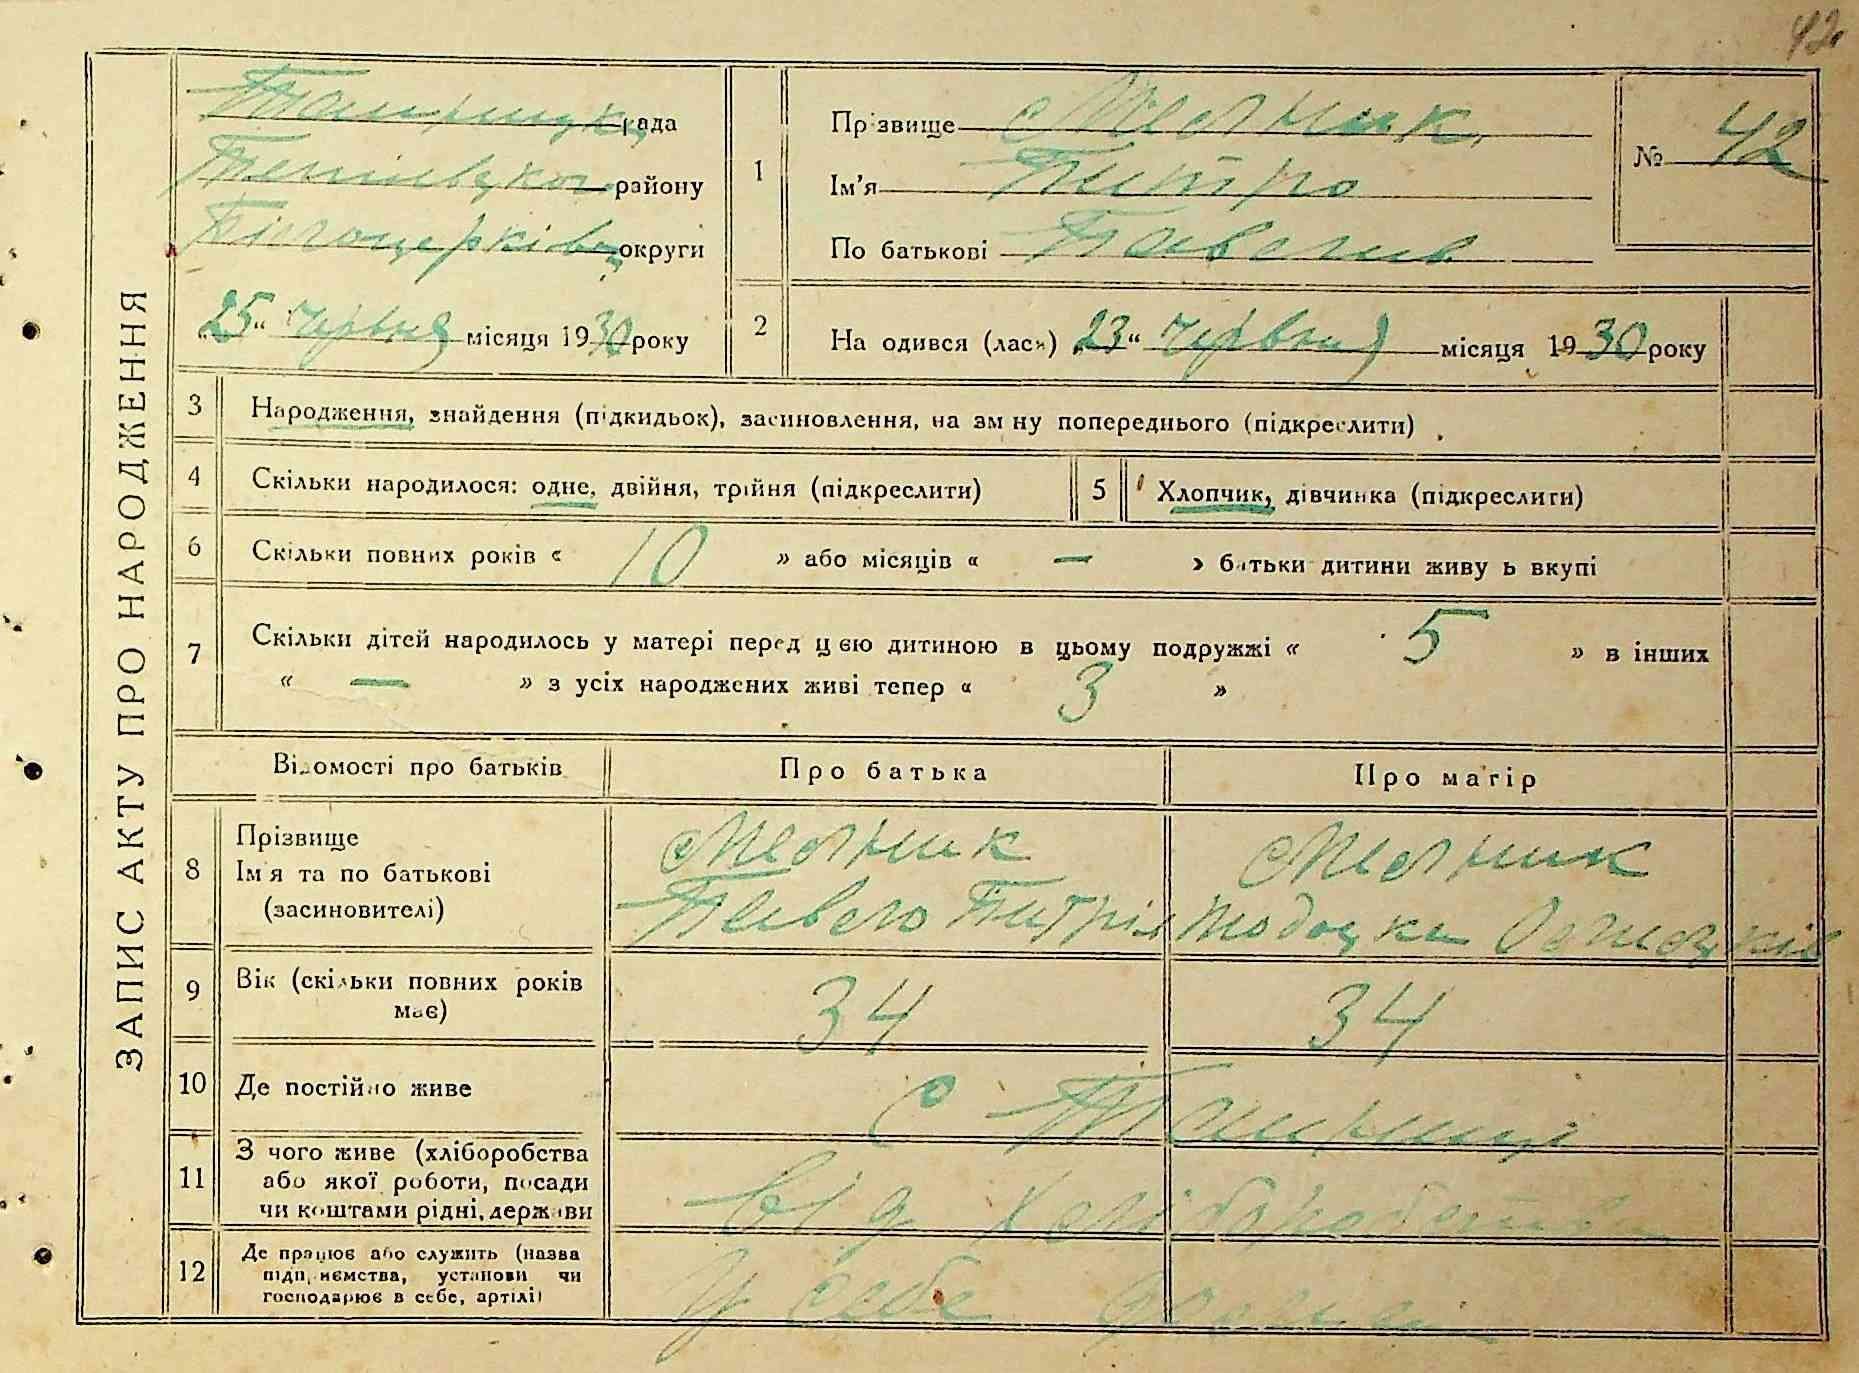 42
ЗАПИС АКТУ ПРО НАРОДЖЕННЯ
рада
району
Білоцерківц округи
„25“ червня місяця 1930 року
1
Прізвище Мельник
Ім'я Питро
По батькові Павелив
№ 42
2
На одився (лася) „23“ червня місяця 1930 року
3 Народження, знайдення (підкидьок), засиновлення, на зм ну попереднього (підкреслити)
4 Скільки народилося: одне, двійня, трійня (підкреслити)
5 Хлопчик, дівчинка (підкреслити)
6 Скільки повних років « 10 » або місяців « — » батьки дитини живу ь вкупі
7 Скільки дітей народилось у матері перед цією дитиною в цьому подружжі « 5 » в інших
« — » з усіх народжених живі тепер « 3 »
Відомості про батьків Про батька Про матір
8 Прізвище
Ім я та по батькові
(засиновителі)
Мельник
Павело Питрів
Мельник
9 Вік (скільки повних років
має)
34 34
10 Де постійно живе
с
11 З чого живе (хліборобства
або якої роботи, посади
чи коштами рідні, держави
від хліборобства
12 Де працює або служить (назва
підприємства, установи чи
господарює в себе, артілі)
У себе дома